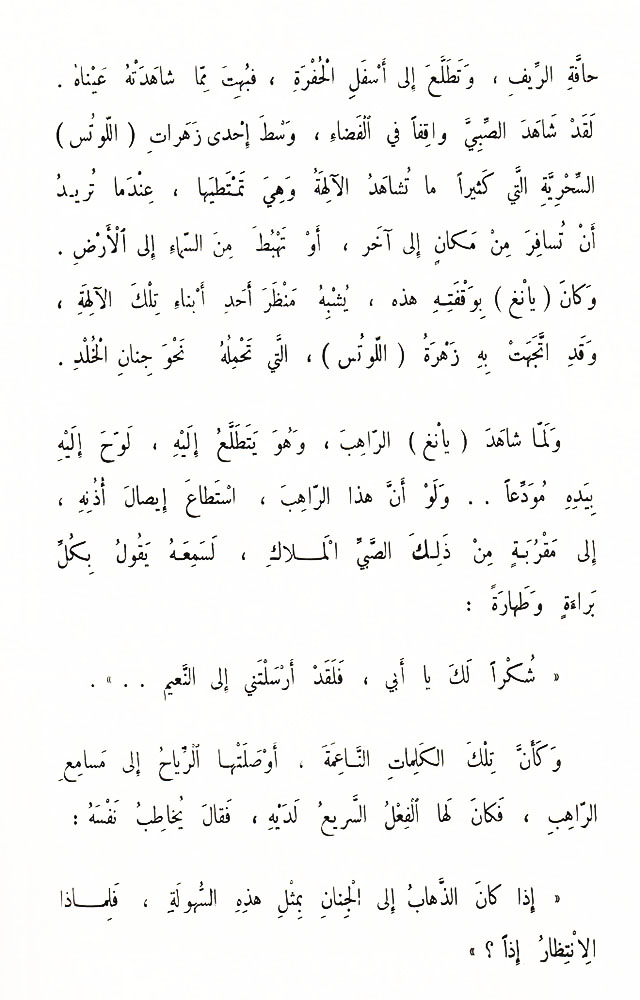 حافَّةِ الرِّيفِ ، وَتَطَلَّعَ إلى أَسْفَلِ الْحُفْرَةِ ، فَبُهِتَ مِمّا شاهَدَتْهُ عَيْناهُ .
لَقَدْ شَاهَدَ الصَّبِيَّ واقِفاً في اَلْفَضاءِ ، وَسْطَ إحْدى زَهَراتِ ( اللّوتُس )
السِّحْرِيَّةِ الَّتي كَثيراً ما تُشاهَدُ الآلِهَةُ وَهِيَ تَمْتَطيها ، عِنْدَما تُريـدُ
أَنْ تُسافِرَ مِنْ مَكانٍ إلى آخَر ، أَوْ تَهْبُطَ مِنَ السّماءِ إلى اَلْأَرْضِ .
وَكانَ ( يانْغ ) بِوَقْفَتِهِ هذه ، يُشْبِهُ مَنْظَرَ أَحَدِ أَبْناءِ تِلْكَ الآلِهَةِ ،
وَقَدِ اتَّجَهَتْ بِهِ زَهْرَةُ ( اللّوتُس ) ، الَّتي تَحْمِلُهُ نَحْوَ جِنانِ الْخُلْدِ .
وَلَمّا شاهَدَ ( يانْغ ) الرّاهِبَ ، وَهُوَ يَتَطَلَّعُ إلَيْهِ ، لَوّحَ إلَيْهِ
بِيَدِهِ مُوَدِّعاً . . وَلَوْ أَنَّ هذا الرّاهِبَ ، اسْتَطاعَ إيصالَ أُذُنِهِ ،
إلى مَقْرُبَـةٍ مِنْ ذَلِـكَ الصَّبِيِّ الْمَـــلاكِ ، لَسَمِعَـهُ يَقُولُ بِكُلِّ
بَراءَةٍ وَطَهارَةً :
« شُكْراً لَكَ يا أَبي ، فَلَقَدْ أَرْسَلْتَني إلى النَّعيم . . » .
وَكَأَنَّ تِلْكَ الكَلِماتِ النَّـاعِمَةَ ، أَوْصَلَتْهـا اَلْرِّياحُ إلى مَسامِعِ
الرّاهِبِ ، فَكانَ لَها اَلْفِعْلُ السَّريعُ لَدَيْهِ ، فَقالَ يُخاطِبُ نَفْسَهُ :
« إذا كانَ الذَّهابُ إلى الْجِنانِ بِمِثْلِ هذِهِ السُّهولَةِ ، فَلِمـــاذا
الِانْتِظارُ إذاً ؟ »